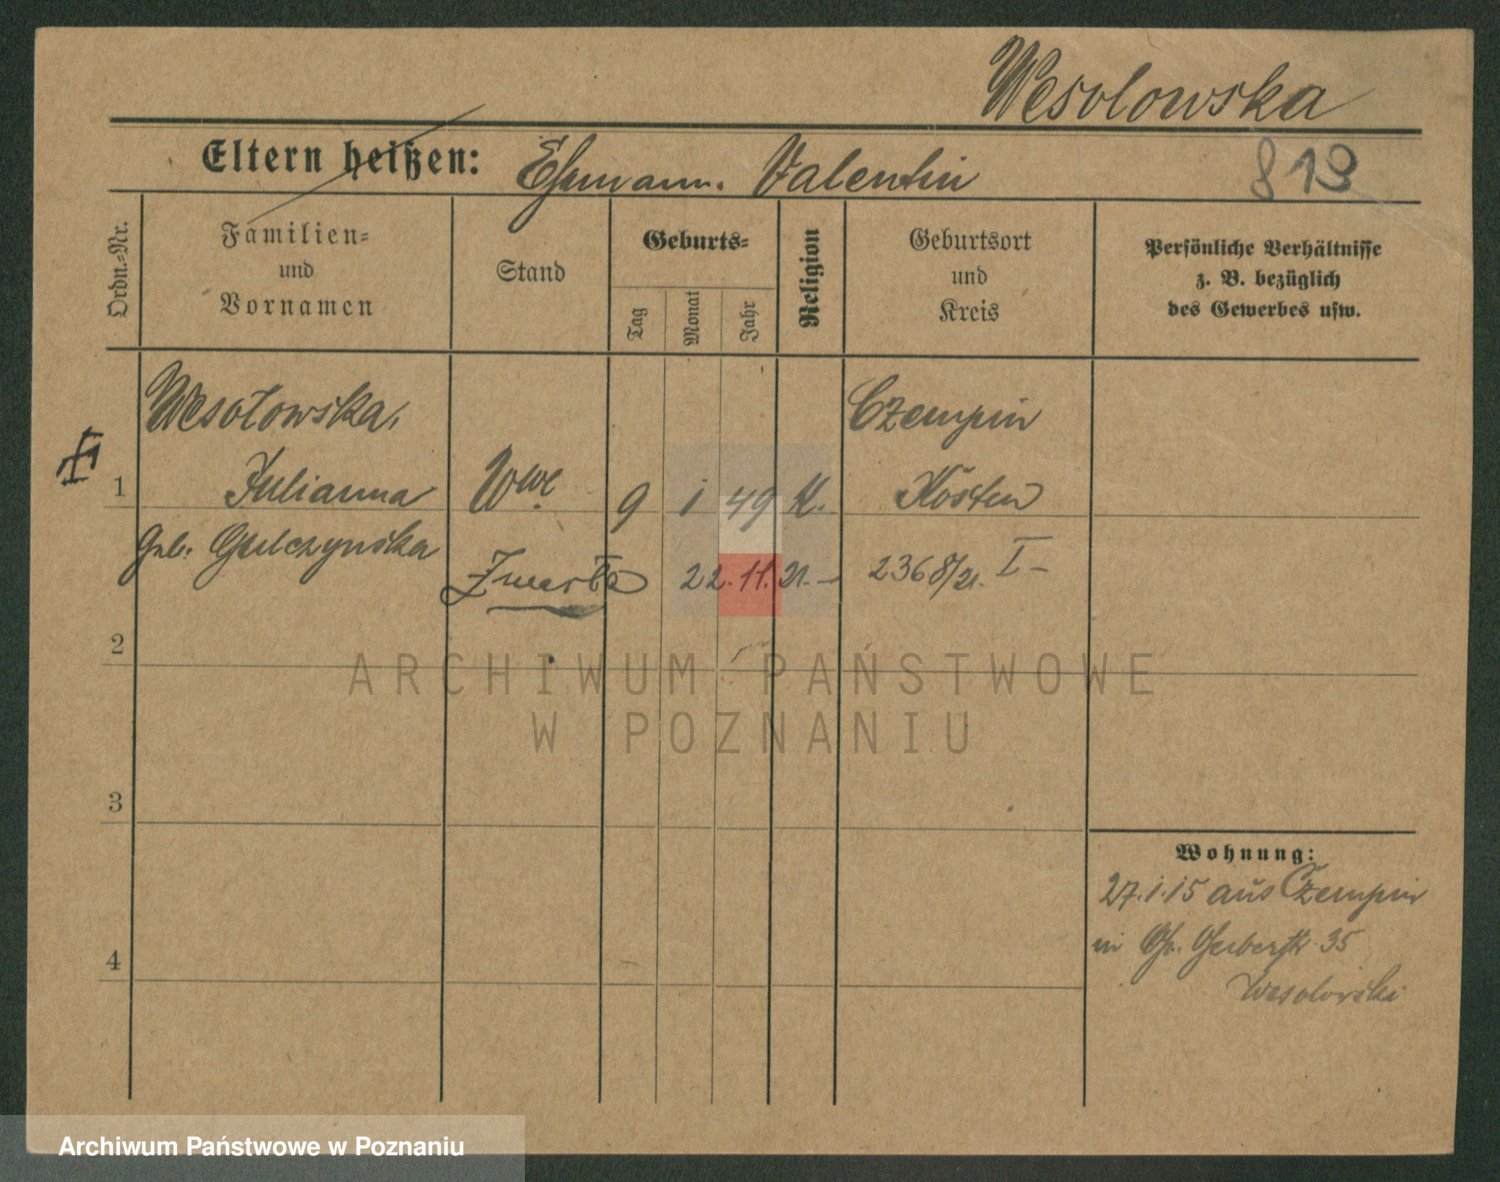 Wesolowska
Eltern heißen: Ehemann. Valentin
819
Ordn.-Nr.
Familien-
und
Vornamen
Stand
Geburts-
Tag
Monat
Jahr
Religion
Geburtsort
und
Kreis
Persönliche Verhältnisse
z. B. bezüglich
des Gewerbes usw.
Wesołowska,
Czempin
II
1 Julianna Wwe. 9 1 49 K. Kosten
geb. Gulczynska
Zmarła 22.11.21.– 2368/21. I–
2
3
4
Wohnung:
27.1.15 aus Czempin
in Gr. Gerberstr. 35
Wesolowski
ARCHIWUM PAŃSTWOWE
W POZNANIU
Archiwum Państwowe w Poznaniu